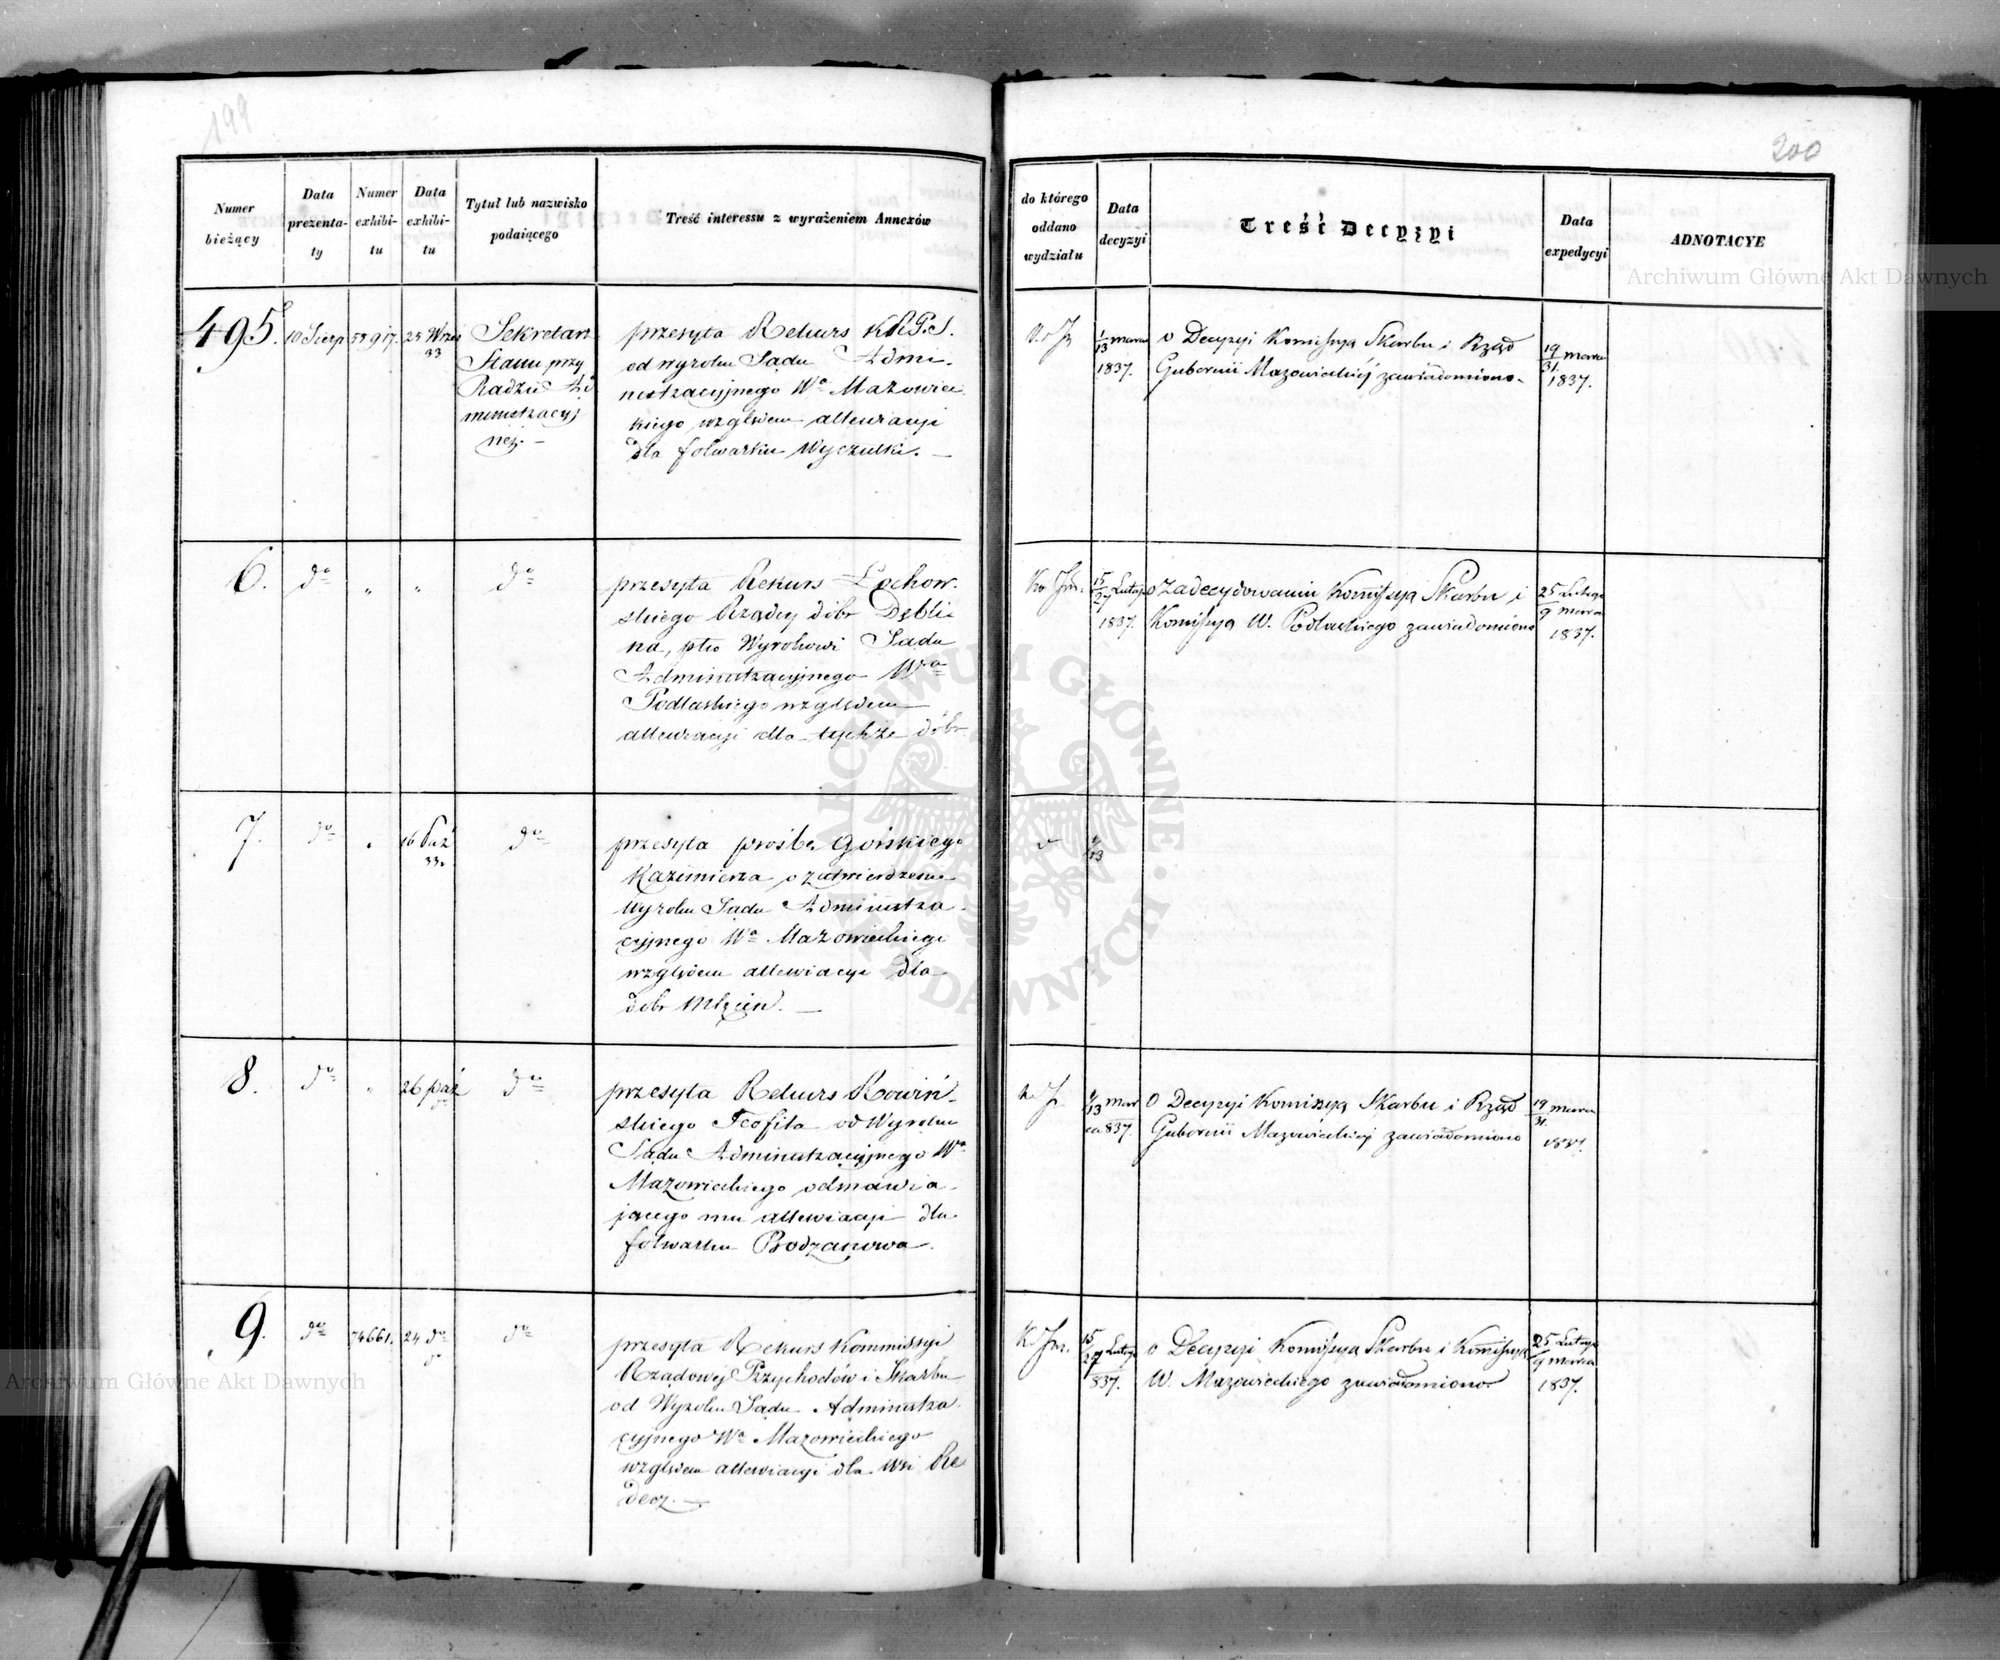 199
Numer bieżący
Data prezentaty
Numer exhibitu
Data exhibitu
Tytuł lub nazwisko podaiącego
Treść interessu z wyrażeniem Annexów
495.
10 Sierp
25 Wrze 33
Sekretarz
Stanu przy
Radzie Ad
ministracyj
nej. —
przesyła Rekurs K.R.P.S.
od wyroku Sądu Admi-
nistracyjnego Wa Mazowiec
kiego względem allewiacyi
dla folwarku Wyczułki. —
6.
do
"
"
do
przesyła Rekurs Łochow-
skiego Rządcy dóbr Dębli
na, pko Wyrokowi Sądu
Administracyjnego Wa
Podlaskiego względem
allewiacyi dla tychże dóbr
7.
do
"
16 Paź
33.
do
przesyła prośbę Górskiego
Kazimierza o zatwierdzenie
Wyroku Sądu Administra
cyjnego Wa Mazowieckiego
względem allewiacyi dla
dóbr Mlęcin. —
8.
do
"
26 paź
do
przesyła Rekurs Rowiń-
skiego Teofila od Wyroku
Sądu Administracyjnego Wa
Mazowieckiego odmawia-
jącego mu allewiacyi dla
folwarku Bodzanowa.
9.
do
74661.
24 do
do
przesyła Rekurs Kommissyi
Rządowej Przychodów i Skarbu
od Wyroku Sądu Administra
cyjnego Wa Mazowieckiego
względem allewiacyi dla Wsi Re
decz. —
200
do którego oddano wydziału
Data decyzyi
Treść Decyzyi
Data expedycyi
ADNOTACYE
1/13 marca
1837.
o Decyzyi Komissya Skarbu i Rząd
Gubernii Mazowieckiéj zawiadomiono.
19/31 marca
1837.
15/27 Lutego
1837.
o zadecydowaniu Komissya Skarbu i
Komissya W. Podlaskiego zawiadomiono
25 Lutego
9 marca
1837.
1/13
1/13 mar
ca 837.
O Decyzyi Komissya Skarbu i Rząd
Gubernii Mazowieckiej zawiadomiono
19/31 marca
1837.
15/27 Lutego
837.
o Decyzyi Komissya Skarbu i Komissya
W. Mazowieckiego zawiadomiono.
25 Lutego
9 marca
1837.
Archiwum Główne Akt Dawnych
Archiwum Główne Akt Dawnych
ARCHIWUM GŁÓWNE AKT DAWNYCH